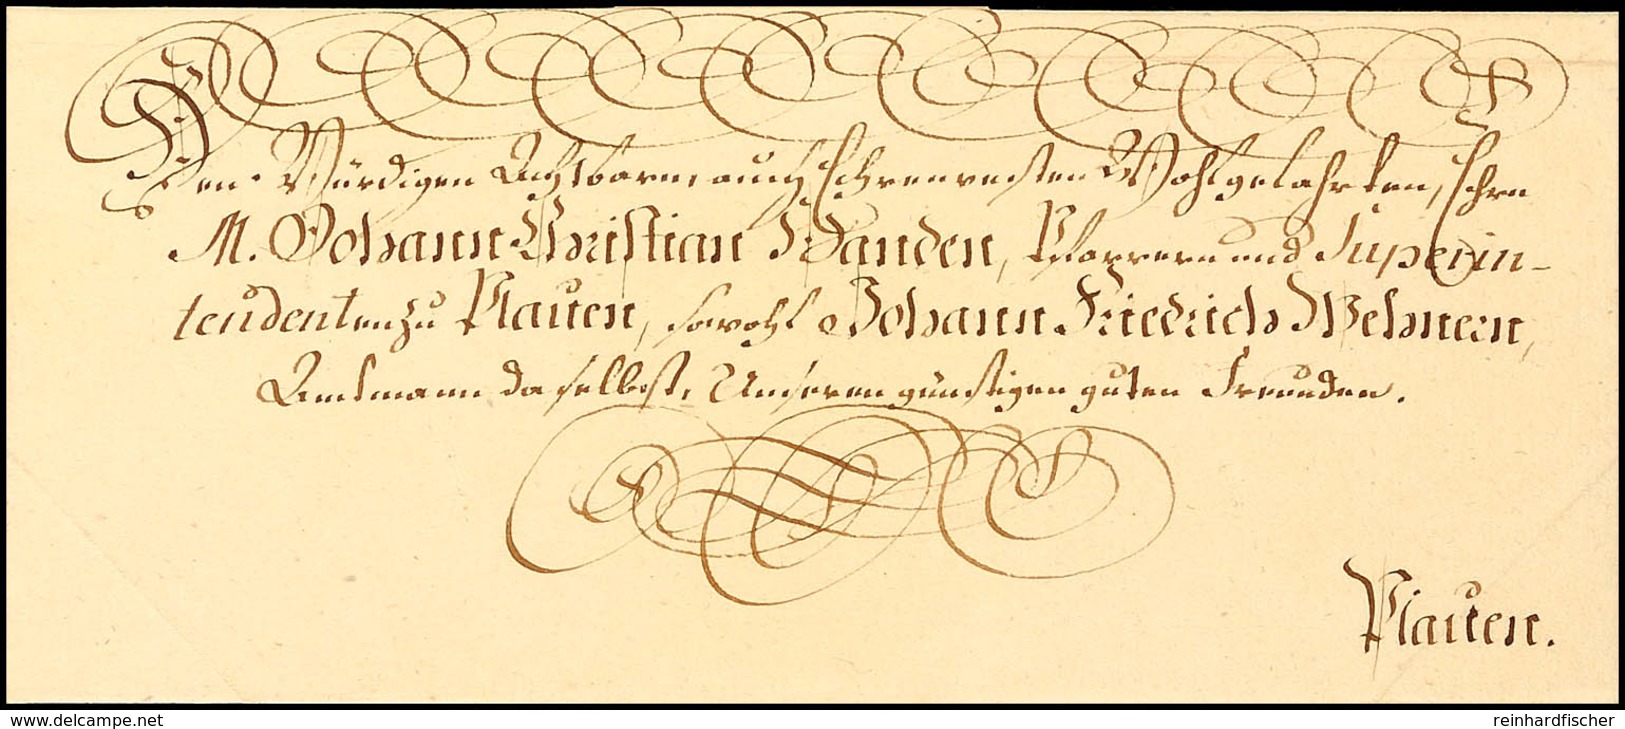 Den Würdigen Achtbarn, auch Ehrenvesten Wohlgelahrten, Ehrn
M. Johann Christian Handen, Pfarrern und Superin-
tendenten zu Plauen, sowohl Johann Friedrich Wehnern,
Amtmann daselbst, Unseren günstigen guten Freunden.
Plauen.
www.delcampe.net
reinhardfischer